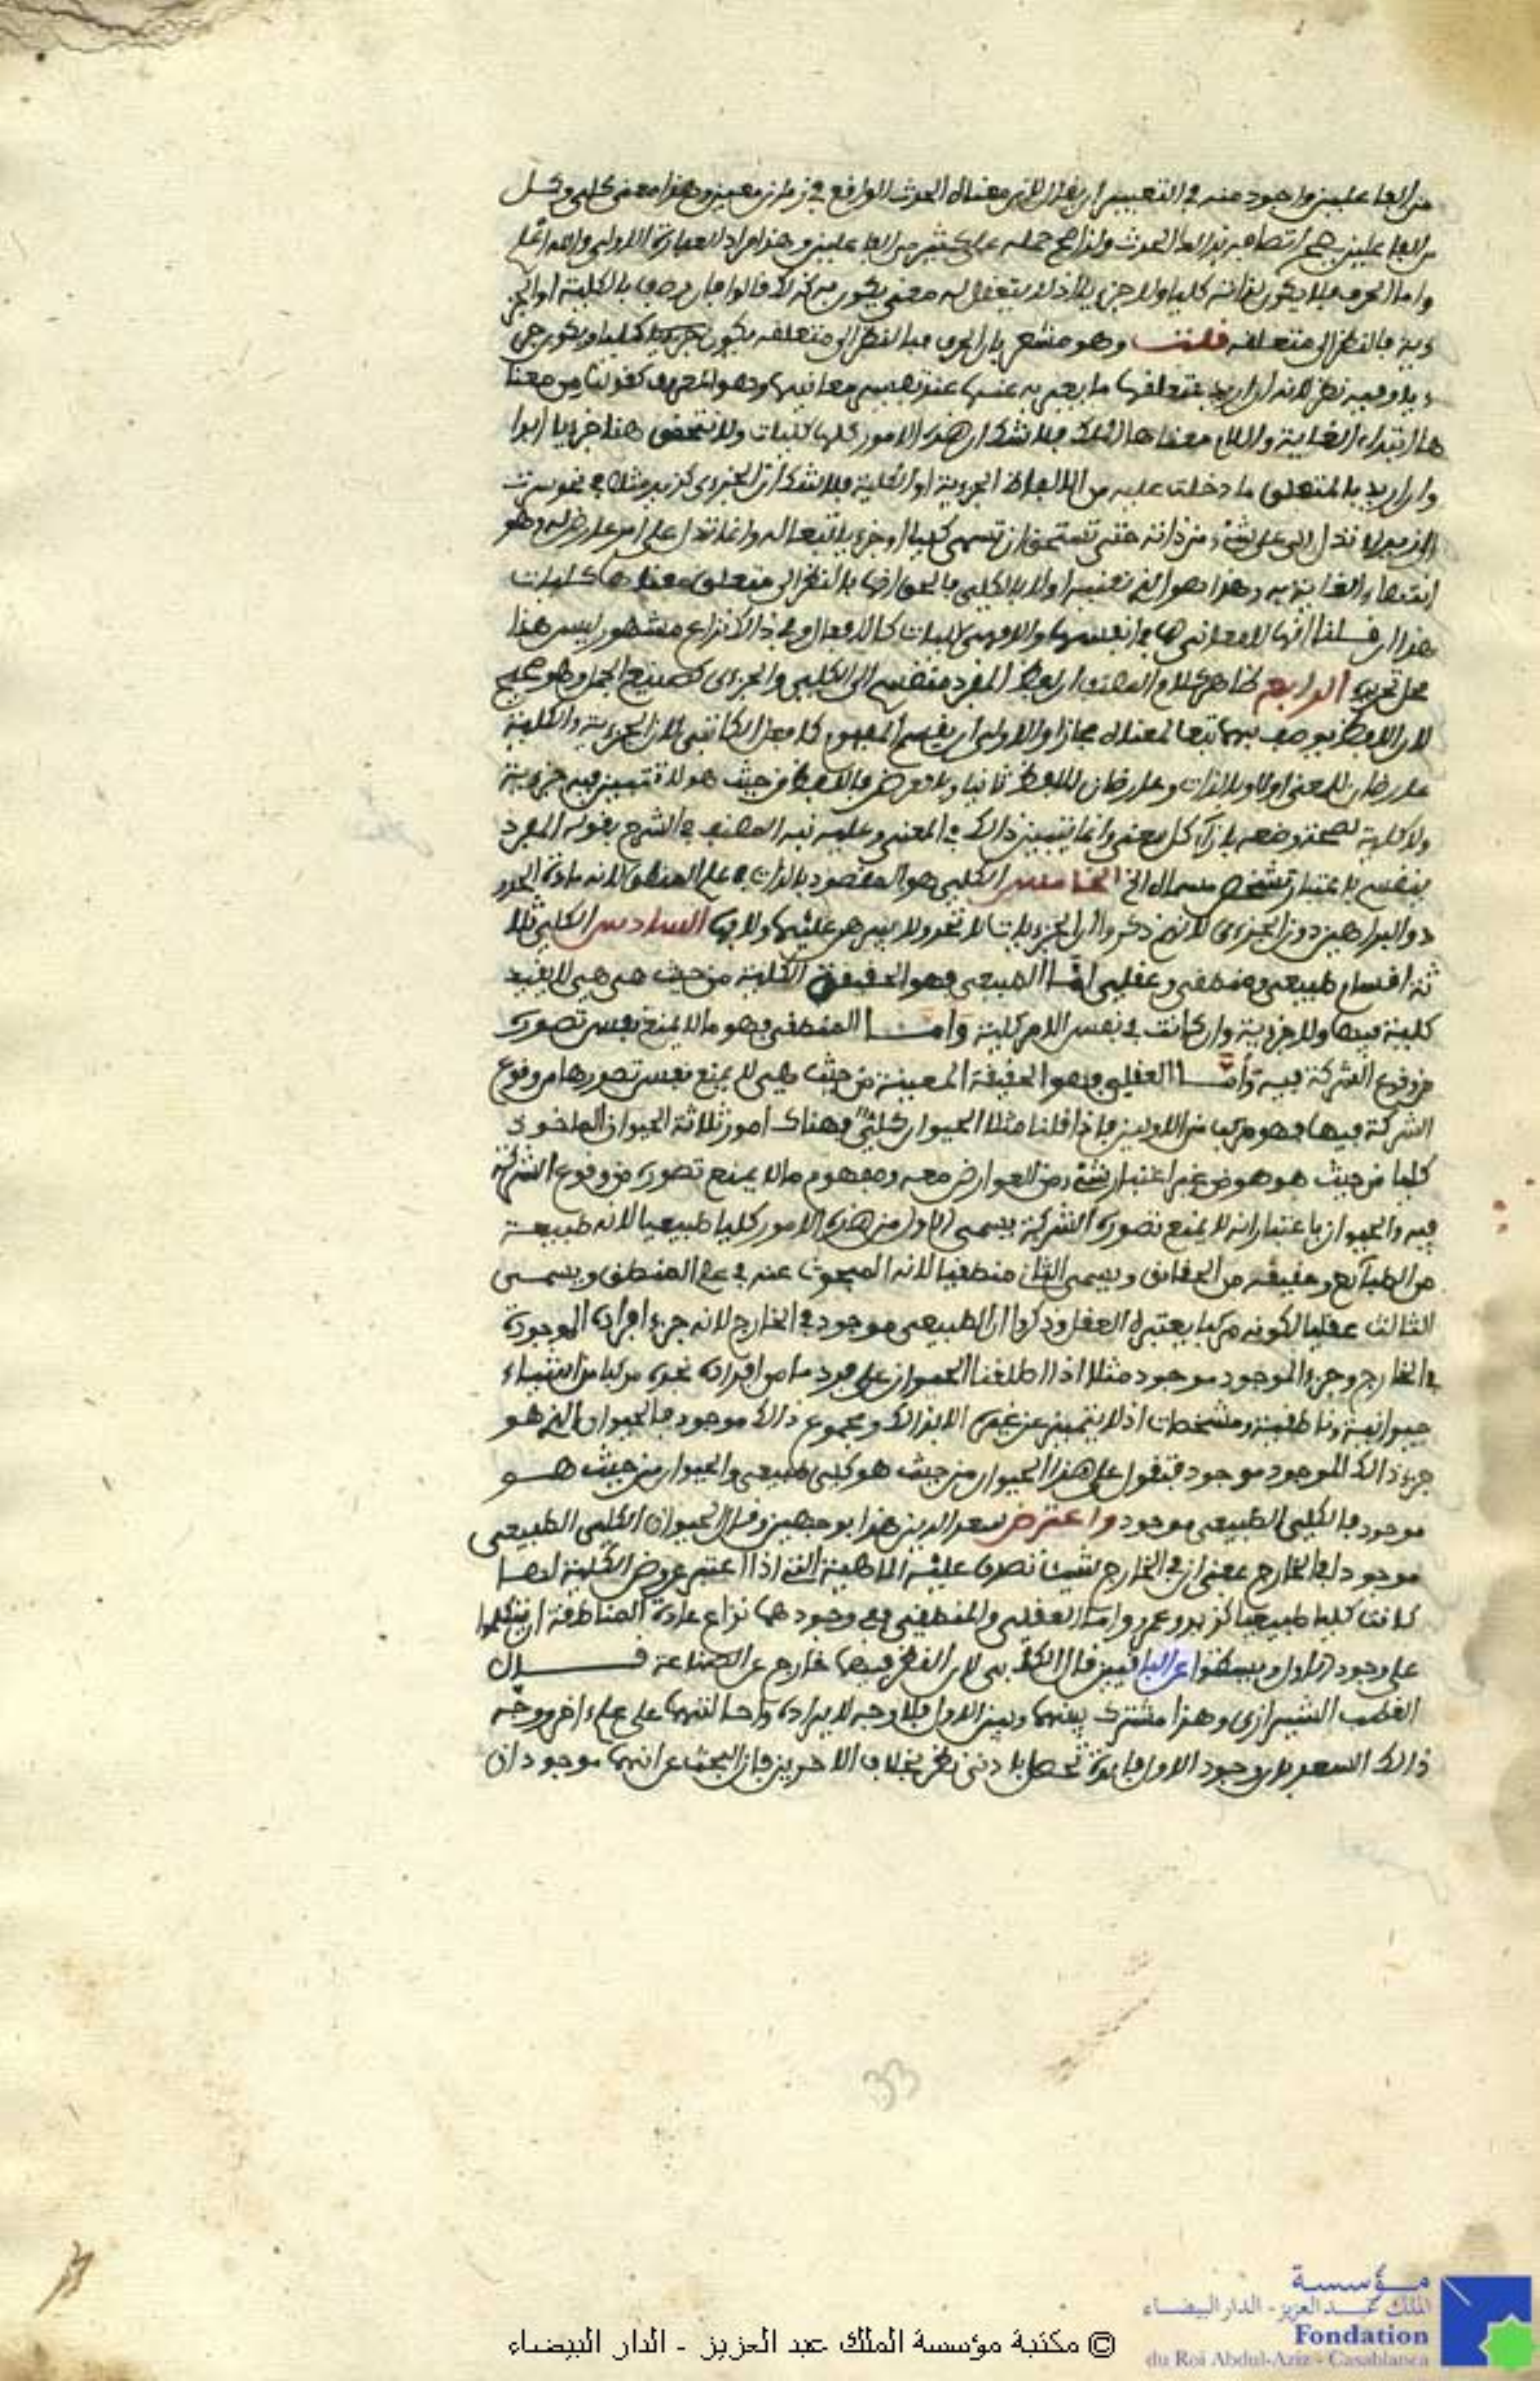 من الفاعلين واجود منه في التعبير ان يقال لان معناه الحدث الواقع في زمان معين وهذا معنى كلي وكل
من الفاعلين يصح اتصافه بذالك الحدث ولذا صح حمله على كثير من الفاعلين وهذا مراد العبارة الاولى والله اعلم
واما الحرف فلا يكون بذاته كليا ولا جزءيا اذ لا يتعقل له معنى يكون به كذلك قالوا فان وصف بالكلية او الجز
ءية فبالنظر الى متعلقه قلت وهو مشعر بان الحرف بالنظر الى متعلقه يكون كليا ويكون جز
ءيا وفيه نظر لانه ان اريد بمتعلقها ما يعبر به عنها عند تفسير معانيها وهو المعروف كقولنا من معنا
ها ابتداء الغاية واللام معناها الملك فلا شك ان هذه الامور كلها كليات ولا يتحقق هنا جزءيا ابدا
وان اريد بالمتعلق ما دخلت عليه من الالفاظ الجزءية او الكلية فلا شك ان الجزءى كزيد مثلا في نحو سرت
الى زيد لا تدل الى على شيء من ذاته حتى تستحق ان تسمى كليا او جزءيا تبعا له وانما تدل على امر عارض له وهو
انتهاء الغاية به وهذا هو الذي نعنيه اولا بالكلي فالحق انها بالنظر الى متعلق معناها كليات
هذا ان قلنا انها لا معاني لها في انفسها والا فهي كليات كالافعال وفي ذالك نزاع مشهور ليس هذا
محل تحريره الرابع ظاهر كلام المصنف ان لفظ المفرد منقسم الى الكلي والجزءى كصنيع الجمل وهو صحيح
لان اللفظ يوصف بهما تبعا لمعناه مجازا والاولى ان يقسم المفهوم كما فعل الكاتبي لان الجزءية والكلية
عارضان للمعنى اولا وبالذات وعارضان للفظ ثانيا وبالعرض فاللفظ من حيث هو لا تتميز فيه جزءية
ولا كلية لصحة وضعه بازاء كل معنى وانما يتبين ذالك في المعنى وعليه نبه المصنف في الشرح بقوله المفرد
ينقسم باعتبار تشخص مسماه الخ الخامس الكلي هو المقصود بالذات في علم المنطق لانه مادة الحدو
د والبراهين دون الجزءى لانهم ذكروا ان الجزءيات لا تحد ولا يبرهن عليها ولا بها السادس الكلي ثلا
ثة اقسام طبيعي ومنطقي وعقلي امّا الطبيعي فهو الحقيقة الكلية من حيث هي هي لا بقيد
كلية فيها ولا جزءية وان كانت في نفس الامر كلية وامّا المنطقي فهو ما لا يمنع نفس تصوره
من وقوع الشركة فيه وأمّا العقلي فهو الحقيقة المعينة من حيث هي لا يمنع نفس تصورها من وقوع
الشركة فيها فهو مركب من الاولين فاذا قلنا مثلا الحيوان كلي فهناك امور ثلاثة الحيوان الماخوذ
كليا من حيث هو هو من غير اعتبار شيء من العوارض معه ومفهوم ما لا يمنع تصوره من وقوع الشركة
فيه والحيوان باعتبار انه لا يمنع تصوره الشركة يسمى الاول من هذه الامور كليا طبيعيا لانه طبيعة
من الطبآئع وحقيقة من الحقائق ويسمى الثاني منطقيا لانه المبحوث عنه في علم المنطق ويسمى
الثالث عقليا لكونه مركبا يعتبره العقل وذكروا ان الطبيعي موجود في الخارج لانه جزء افراده الموجودة
في الخارج وجزء الموجود موجود مثلا اذا اطلقنا الحيوان على فرد ما من افراده نجده مركبا من اشياء
حيوانية وناطقية ومشخصات اذ لا يتميز عن غيره الا بذالك ومجموع ذالك موجود فالحيوان الذي هو
جزء ذالك الموجود موجود فنقول على هذا الحيوان من حيث هو كلي طبيعي والحيوان من حيث هو
موجود فالكلي الطبيعي موجود واعترض سعد الدين هذا بوجهين وقال الحيوان الكلي الطبيعي
موجود في الخارج بمعنى ان في الخارج شيئا تصدق عليه الماهية التي اذا اعتبر عروض الكلية لها
كانت كليا طبيعيا كزيد وعمرو وامّا العقلي والمنطقي ففي وجودهما نزاع عادة المناطقة ان يتكلموا
على وجود الاول ويسكتوا عن الباقيين قال الكاتبي لان النظر فيهما خارج عن الصناعة قال
القطب الشيرازى وهذا مشترك بينهما وبين الاول فلا وجه لايراده واحالتهما على علم اخر ووجه
ذالك السعد بان وجود الاول فائدة تحصل بادنى نظر بخلاف الاخرين فان البحث عن انهما موجودان
33
مؤسسة
الملك عبد العزيز - الدار البيضاء
Fondation
du Roi Abdul-Aziz - Casablanca
© مكتبة مؤسسة الملك عبد العزيز - الدار البيضاء